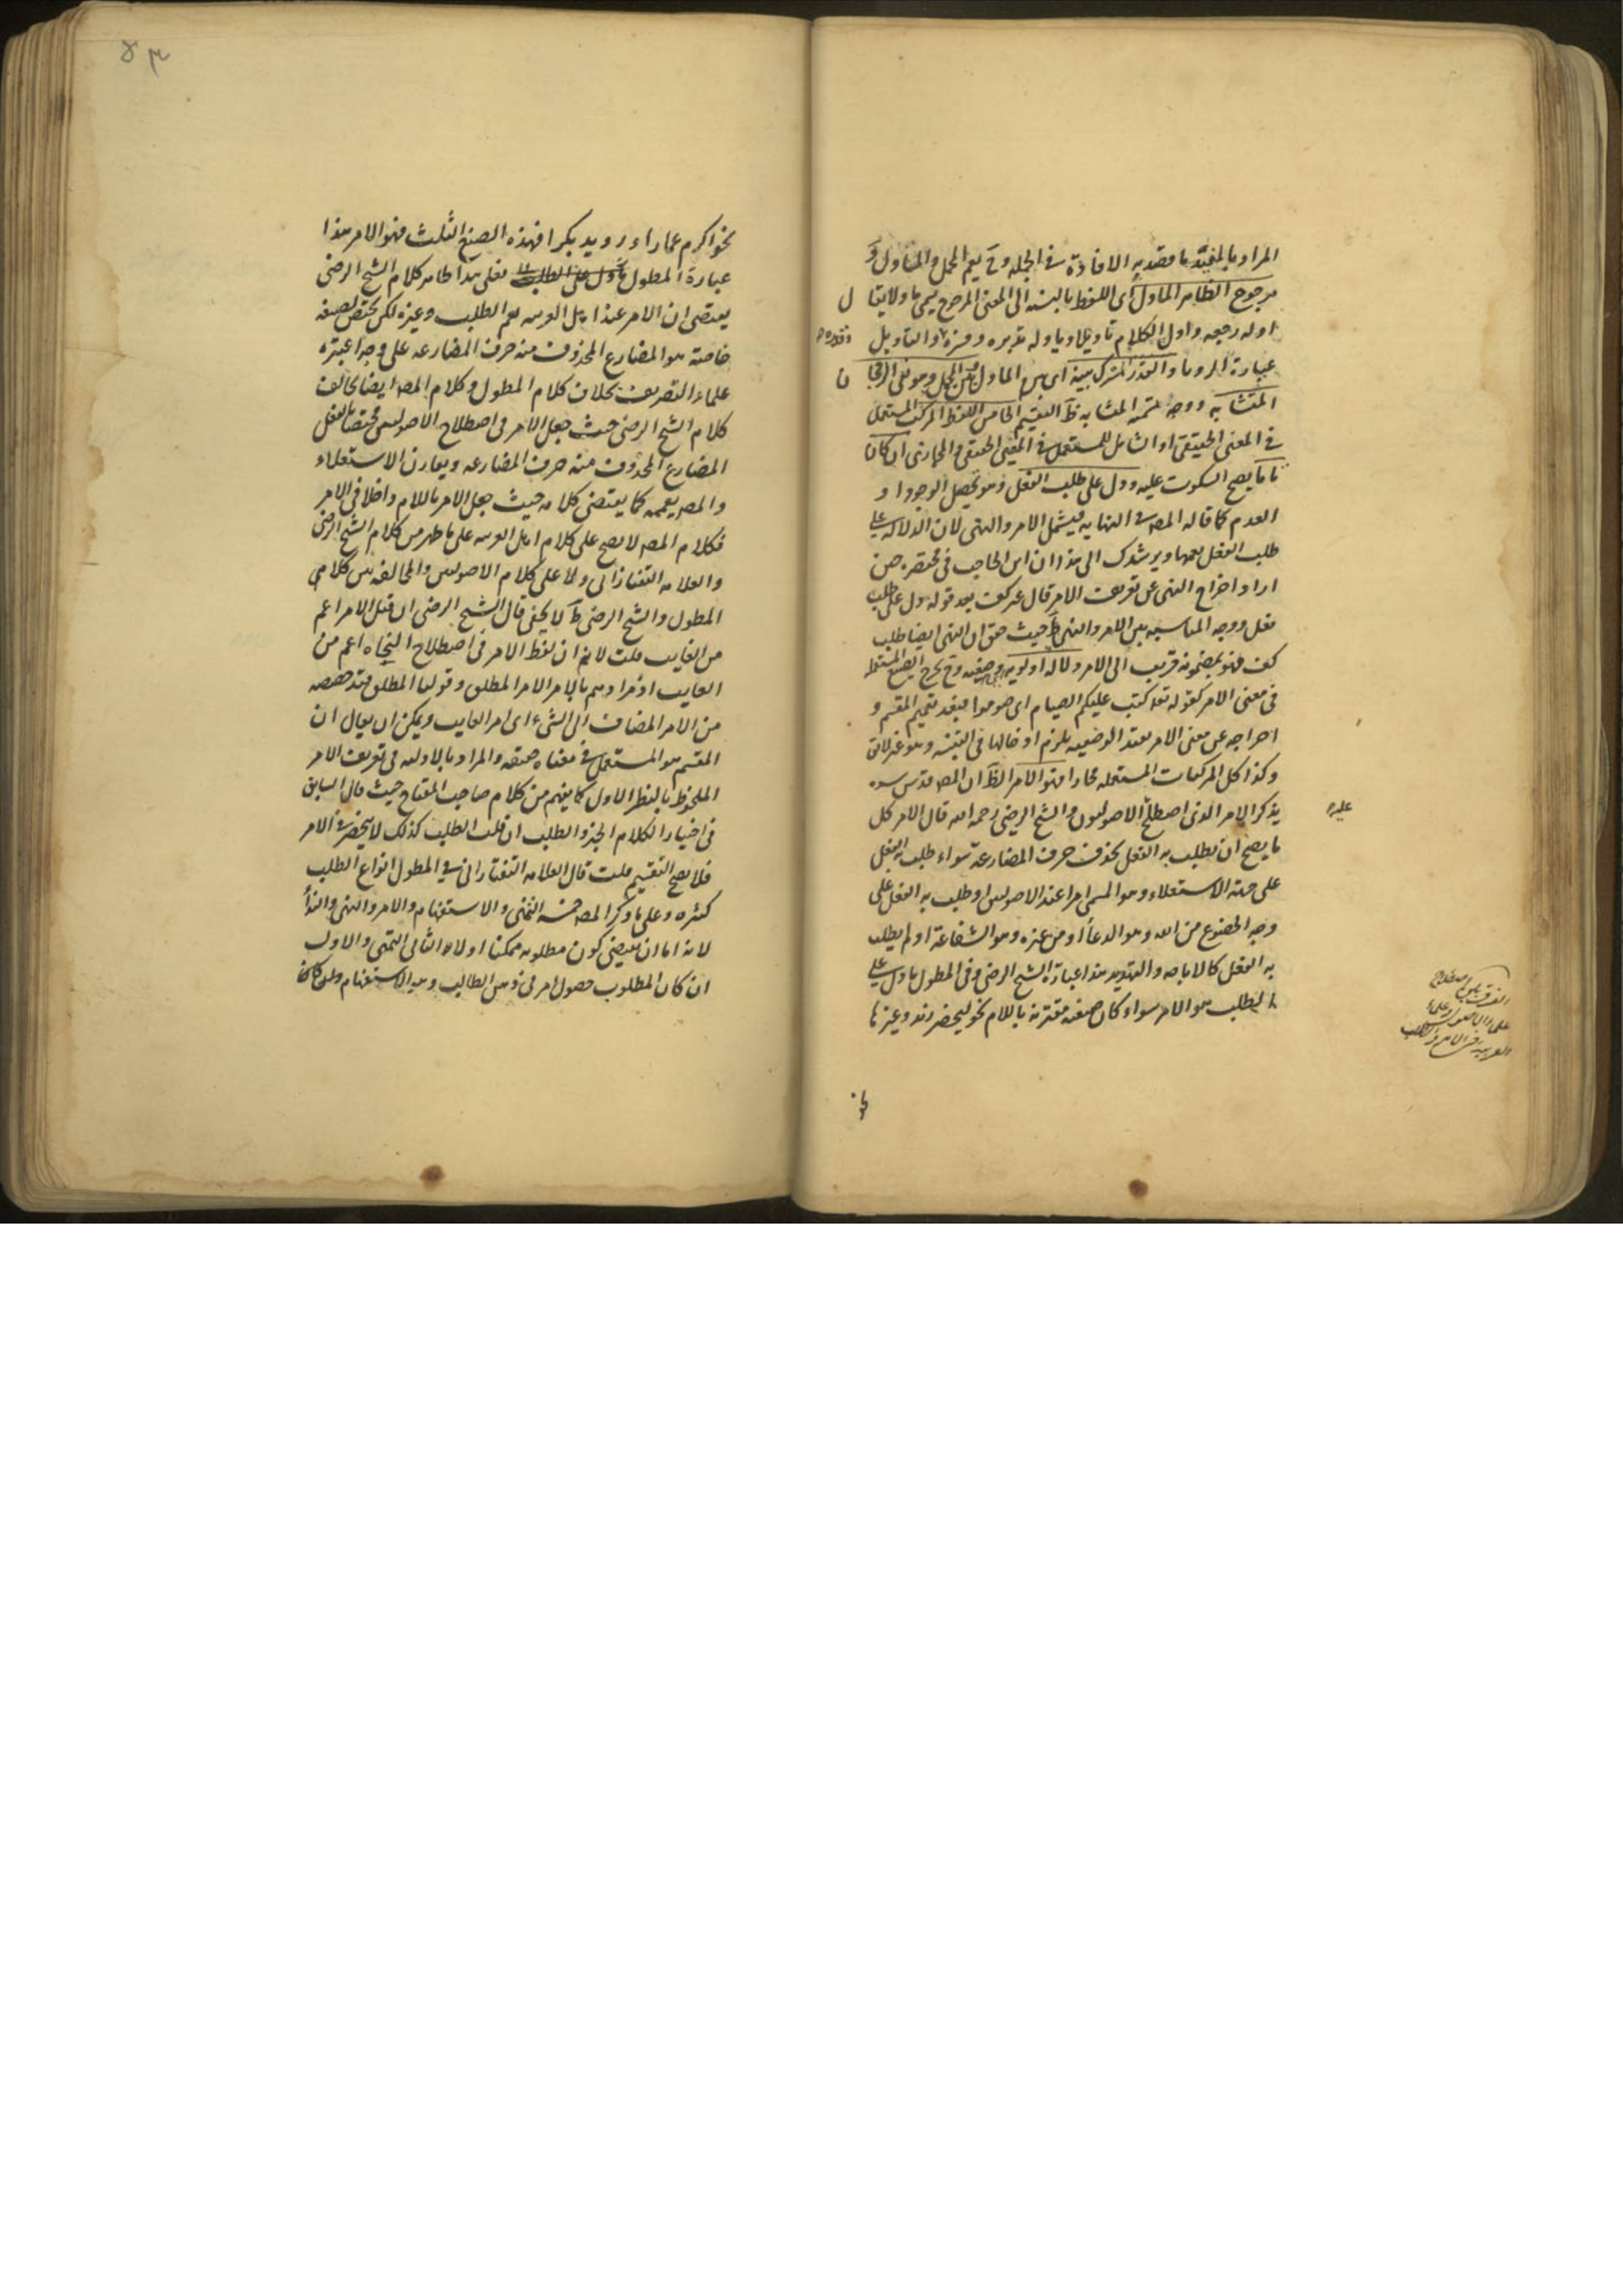 المراد بالمفيد ما قصد به الافادة في الجملة وح يعم المجمل والمتاول و
مرجوح الظاهر الماول اى اللفظ بالنسبه الى المعنى المرجوح يسمى ماولا يقال
اوله رجعه واول الكلام تاويلا وتاوله تدبره وقدره وفسره والتاويل
عبارة الرويا والقدر المشترك بينه اى بين الماول وبين المجمل وهو نفى الرجحان
المتشابه ووجه تسميته المتشابه ظ التقسيم الخامس اللفظ المركب المستعمل
في المعنى الحقيقى او الشامل للمستعمل في المعنى الحقيقى والمجازى ان كان
تاما يصح السكوت عليه ودل على طلب الفعل وهو تحصيل الوجود او
العدم كما قاله المصه في النهايه فيشمل الامر والنهى لان الدلالة على
طلب الفعل يعمها ويرشدك الى هذا ان ابن الحاجب في مختصره حين
اراد اخراج النهى عن تعريف الامر قال غير كف بعد قوله دل على طلب
فعل ووجه المناسبه بين الامر والنهى ظ حيث حقق ان النهى ايضا طلب
كف فهو بمضمونه قريب الى الامر ودلالة اولويه وضعيه وح يخرج الصيغ المستعمله
في معنى الامر كقوله تعه كتب عليكم الصيام اى صوموا فبعد تعميم المقسم و
اخراجه عن معنى الامر بقيد الوضعيه يلزم ادخالها في التنبيه وهو غير لائق
وكذا كل المركبات المستعمله مجازا فهو الامر الظ ان المصه قدس سره
يذكر الامر الذى اصطلح الاصوليون والشيخ الرضى رحمه الله قال الامر كل
عليه
ما يصح ان يطلب به الفعل بحذف حرف المضارعة سواء طلب به الفعل
على جهة الاستعلاء وهو المسمى امرا عند الاصوليين او طلب به الفعل على
وجه الخضوع من الله وهو الدعاء او من غيره وهو الشفاعة او لم يطلب
به الفعل كالاباحه والتهديد هذا عبارة الشيخ الرضى وفي المطول ما دل على
الطلب هو الامر سواء كان صيغه مقترنة باللام نحو ليحضر زيد وغيرها
الفرق بين اصطلاح
علماء الاصول وعلماء
العربيه في الامر والطلب
نحو
نحو اكرم عمارا ورويد بكرا فهذه الصيغ الثلث فهو الامر هذا
عبارة المطول فعلى هذا ظاهر كلام الشيخ الرضى
يقتضى ان الامر عند اهل العربيه يعم الطلب وغيره لكن يختص بصيغه
خاصة هو المضارع المحذوف منه حرف المضارعه على وجه اعتبره
علماء التصريف بخلاف كلام المطول وكلام المصه ايضا يخالف
كلام الشيخ الرضى حيث جعل الامر في اصطلاح الاصوليين مختصا بالفعل
المضارع المحذوف منه حرف المضارعه ويقارن الاستعلاء
والمصه يعممه كما يقتضى كلامه حيث جعل الامر باللام داخلا في الامر
فكلام المصه لا يصح على كلام اهل العربيه على ما ظهر من كلام الشيخ الرضى
والعلامه التفتازانى ولا على كلام الاصوليين والمخالفه بين كلامى
المطول والشيخ الرضى ظ لا يخفى قال الشيخ الرضى ان قيل الامر اعم
من الغايب قلت لا نم ان لفظ الامر في اصطلاح النحاه اعم من
الغايب اذ مرادهم بالامر الامر المطلق وقولنا المطلق قيد خصصه
من الامر المضاف الى الشىء اى امر الغايب ويمكن ان يقال ان
المقسم هو المستعمل في معناه حقيقه والمراد بالاوليه في تعريف الامر
الملحوظ بالنظر الاول كما يفهم من كلام صاحب المفتاح حيث قال السابق
في اختيار الكلام الخبر والطلب ان قلت الطلب كذلك لا ينحصر في الامر
فلا يصح التقسيم قلت قال العلامه التفتازانى في المطول انواع الطلب
كثيره وعلى ما ذكر المصه خمسه التمنى والاستفهام والامر والنهى والنداء
لانه اما ان يقتضى كون مطلوبه ممكنا او لا والثانى التمنى والاول
ان كان المطلوب حصول امر في ذهن الطالب وهو الاستفهام وان كان